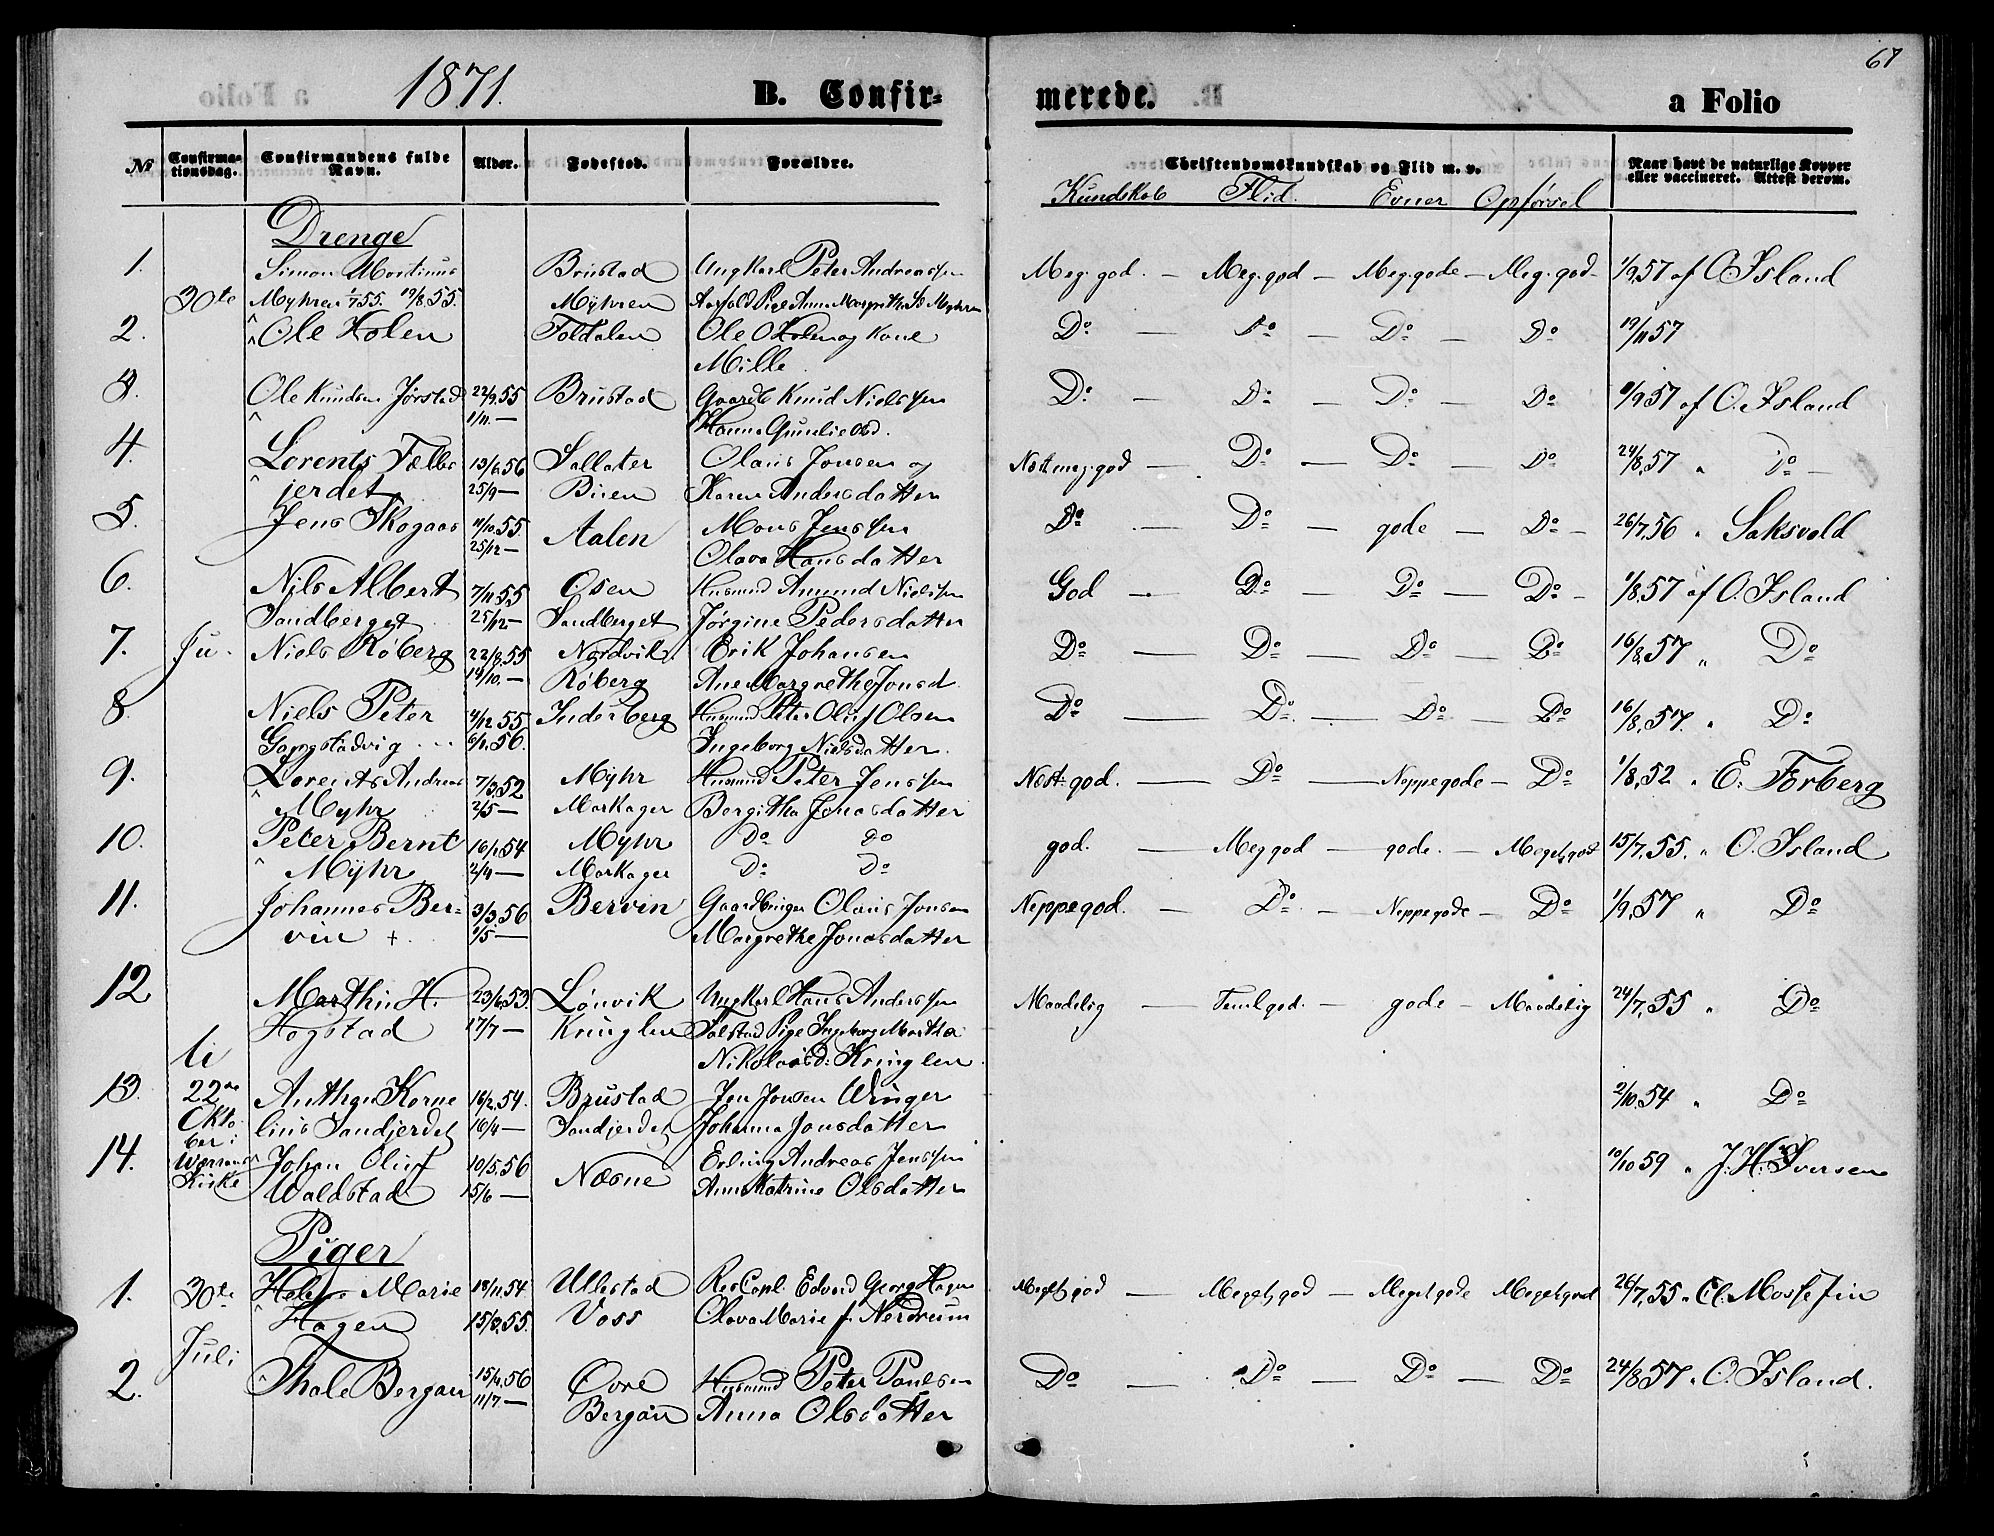 67
1871. B. Confirmerede. a Folio
No Confirmationsdag. Confirmandens fulde Navn. Alder. Fødested. Forældre. Christendomskundskab og Flid m. v. Naar havt de naturlige Kopper eller vaccineret. Attest derom.
Kundskab Flid. Evner Opførsel
Drenge
1. Simon Martinus Brustad Ungkarl Peter Andreassen Meg. god. — Meg. god — Meg. gode — Meg. god — 1/9 57 af O. Island
30te Myhren 1/7 55. 19/8 55. Myhren Pige Anna Margrethe
2. Ole Holen Foldalen Ole O Holen og Kone Do — Do — Do — Do 19/11 57
Mille.
3. Ole Knudsen Jørstad 22/9 55 Brustad Gaardb Knud Nielssen Do — Do — Do — Do 1/9 57 af O. Island
1/11 — Hanna
4. Lorents Fælles 13/6 56 Sallater Olaus Jonsen og Næst meg. god — Do — Do — Do 24/8 57 " Do —
jerdet 25/9 — Buen Karen Andersdatter
5. Jens Skogaas 11/10 55. Aalen Mons Jenssen Do — Do — gode — Do — 26/7 56 " Saksvold
25/12 — Olava Hansdatter
6. Nils Albert 7/11 55 Osen Husmnd Amund Nielssen God — Do — Do — Do — 1/8 57 af O. Island
Sandberget 25/12 — Sandberget Jørgine Pedersdatter
7. Ju- Niels Røberg 22/8 55 Nordvik Erik Johansen Do — Do — Do — Do 16/8 57 " Do
14/10. — Røberg Ane Margrethe Jonsd.
8. Niels Peter 4/12 55 Inderberg Husmnd Peter Oluf Olsen Do — Do — Do — Do 16/8 57. " Do
Gangstadvig 6/1 56. Ingeborg Nielsdatter.
9. Lorents Andreas 7/3 52 Myhr Husmnd Peter Jenssen Næst god. — Do — Neppe gode — Do 1/8 52 " E. Forberg
Myhr 2/5 — Markager Bergitha Jonasdatter
10. Peter Bernt 16/1 54 Myhr Do Do god. — Meg god — gode. — Meget god 15/7 55. " O. Island
Myhr 2/4 — Markager Do Do
11. Johannes Ber- 3/3 56 Bervin Gaardbruger Olaus Jonsen Neppe god. — Do — Neppe gode — Do 1/9 57 " Do
vin +. 1/5 — Margrethe Jonasdatter
12 Marthin H. 23/6 53. Lønvik Ungkarl Hans Anderssen Maadelig — Temel god. — gode — Maadelig 24/7 55 " Do
Hogstad 17/7 — Kringlen Pige Ingeborg Martha
li Nikolaisd: Kringlen.
13. 22de Anthon Korne 16/2 54. Brustad Jen Jonsen Winger 2/10 54 " Do
Okto- lius Sandjerdet 16/4 — Sandjerdet Johanna Jonsdatter
14. ber i Johan Oluf 10/5 56 Næsne Erling Andreas Jenssen 10/10 59 " J. H. Iversen
Kirke Waldstad 15/6 — Anna Katrine Olsdatter
Piger
1. 30te Helene Marie 18/11 54. Ullestad Res Capl. Edvard Georg Hagen Meget god — Meget god — Meget gode Meget god 26/7 55 " Cl. Mossefin
Hagen 15/3 55. Voss Olava Marie f. Nerdrum
Juli
2. Thale Bergan 15/1 56 Øvre Husmnd Peter Paulsen Do — Do — Do — Do 24/8 57 " O. Island.
11/7 — Bergan Anna Olsdatter